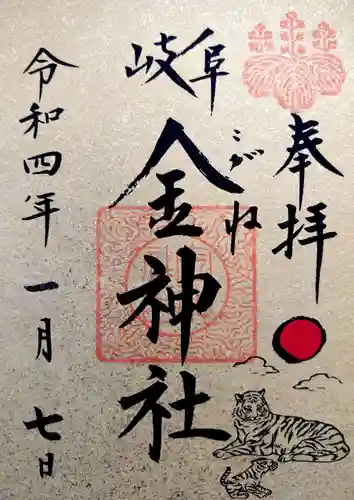 奉拝
岐阜
金神社
こがね
令和四年一月七日